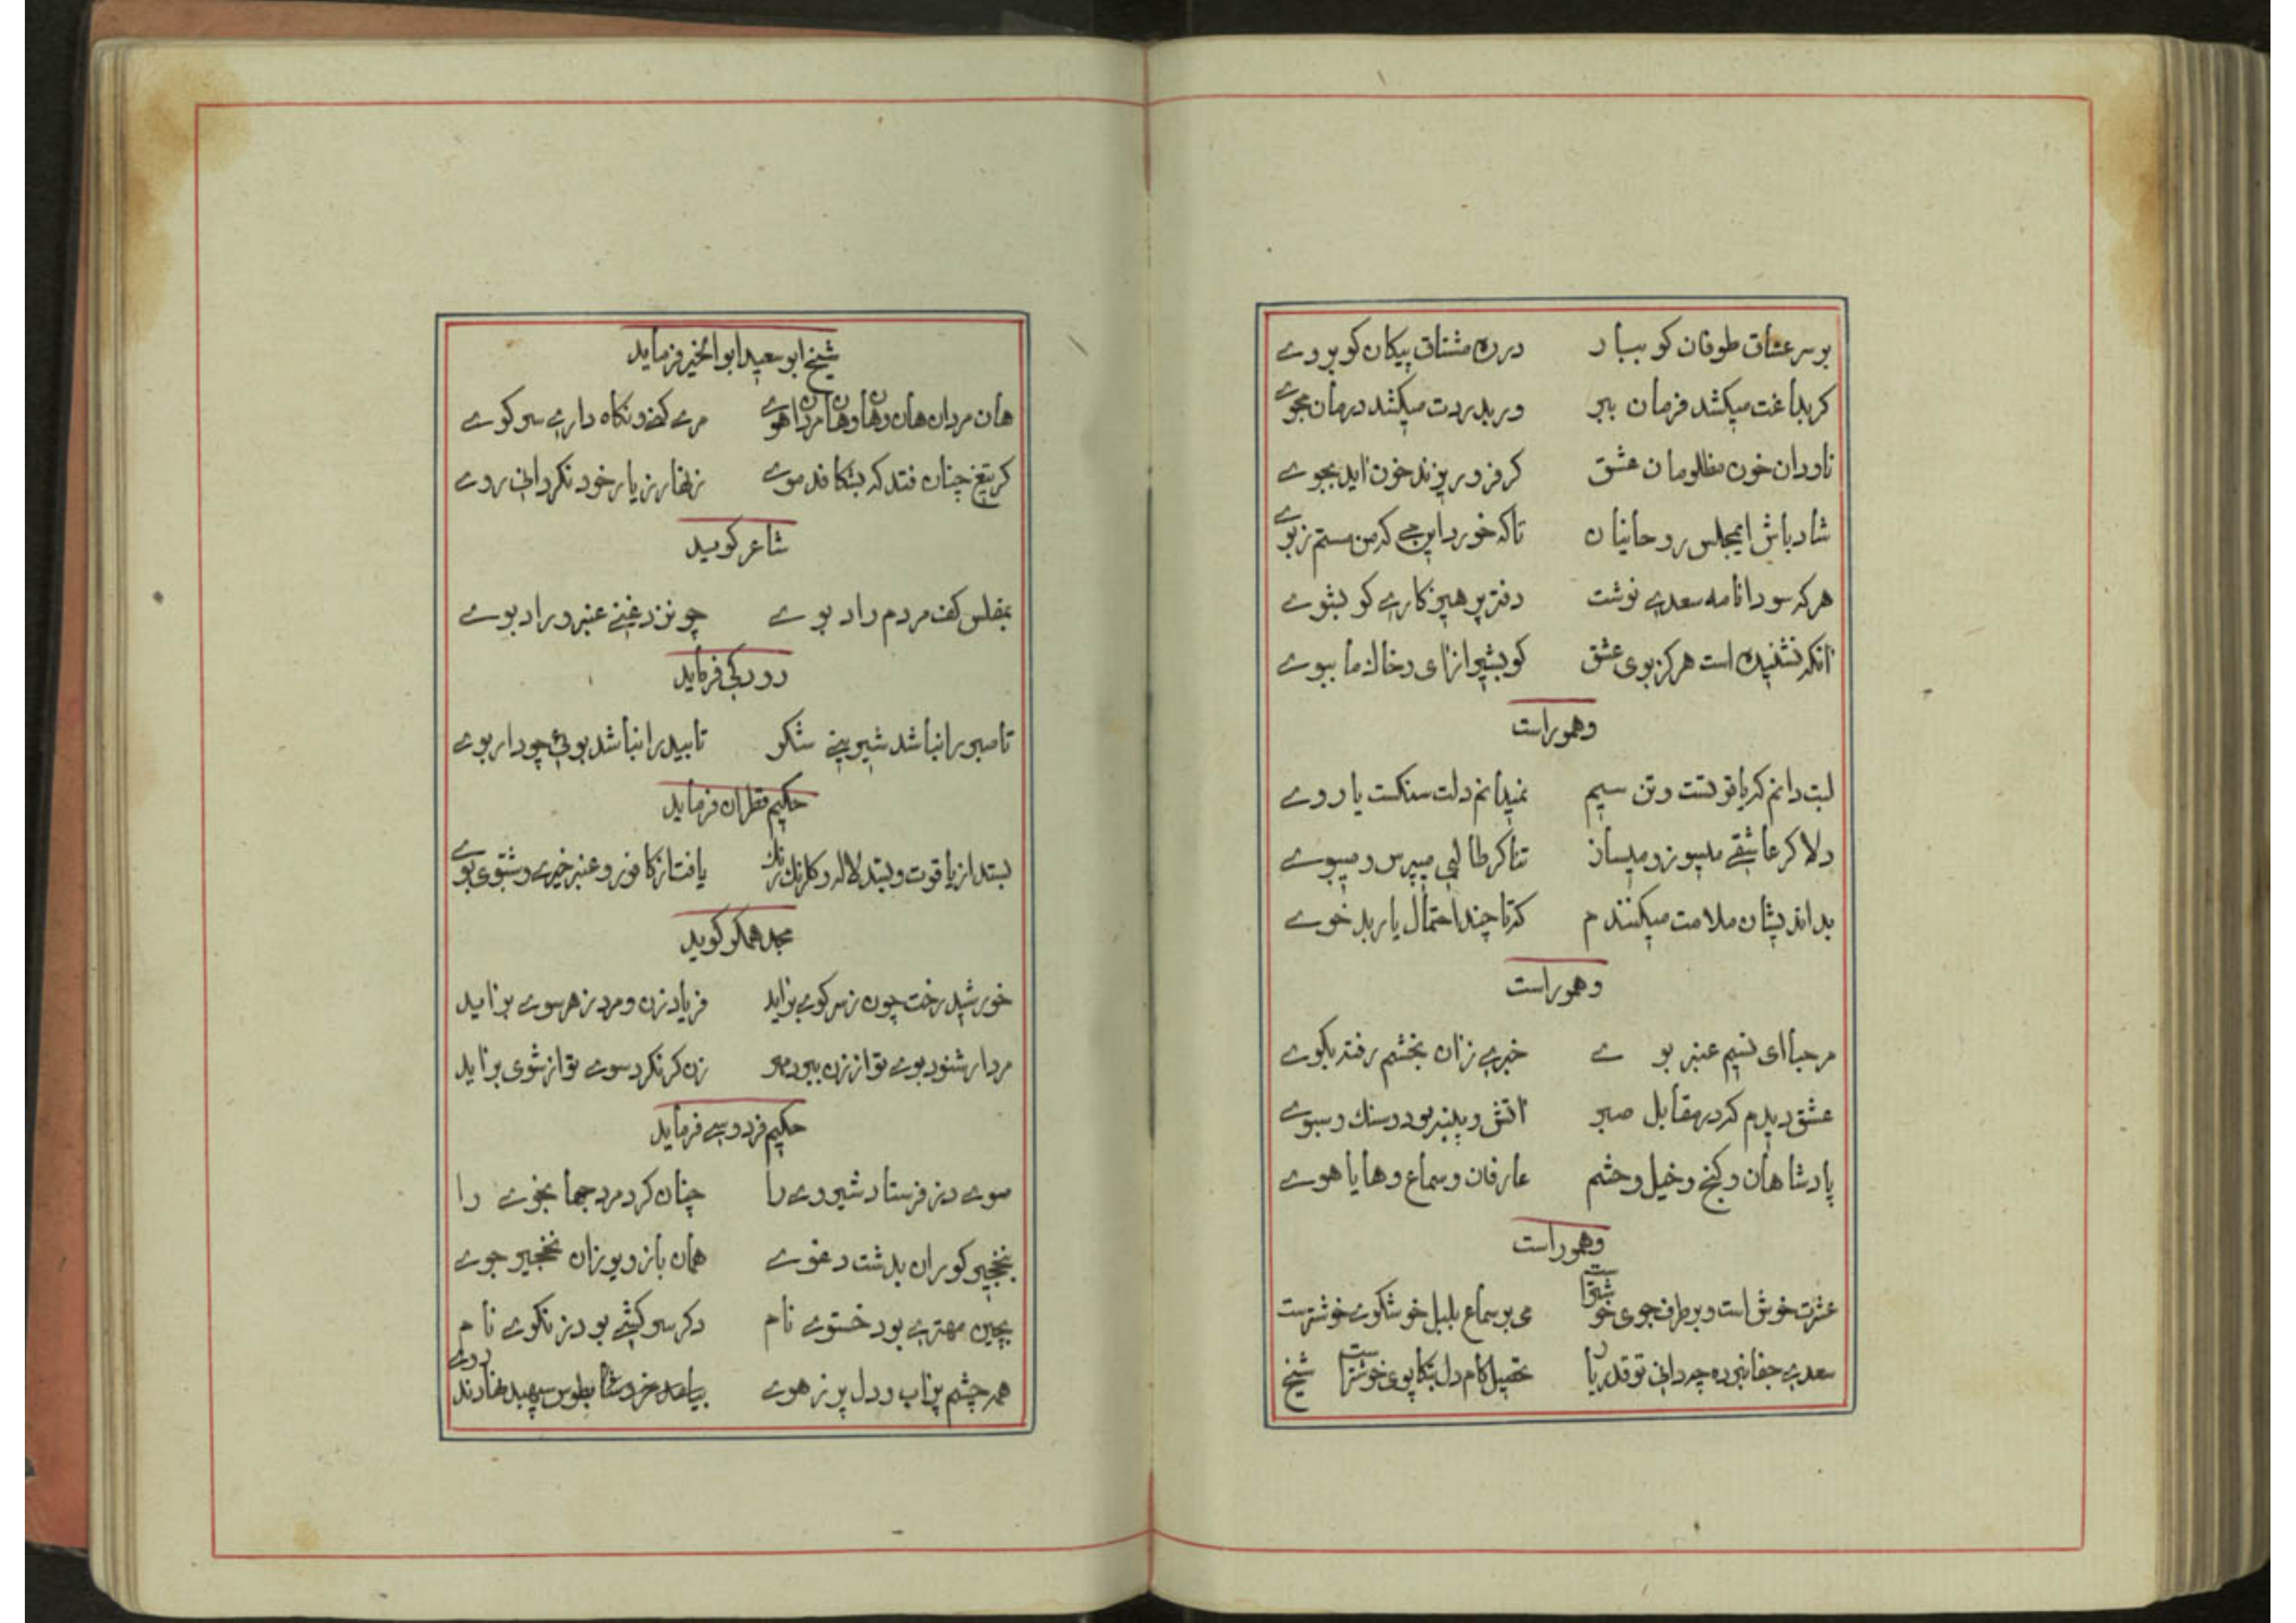 بر سر عشاق طوفان کو ببار در ره مشتاق پیکان کو بروے
کر بداغت میکشد فرمان ببر ور بدردت میکشد درمان مجوے
ناودان خون مظلومان عشق کر فرو ریزند خون اید بجوے
شاد باش ایمجلس روحانیان تا که خورد این مے که من مستم زبوے
هر که سودا نامه سعدے نوشت دفتر پرهیزکارے کو بشوے
انکه نشنیده است هرکز بوی عشق کو بشیراز ای و خاک ما ببوے
و هموراست
لبت دانم که یاقوتست و تن سیم نمیدانم دلت سنکست یا روے
دلا کر عاشقے میسوز و میساز تنا کر طالبی میپرس و میپوے
بد اندیشان ملامت میکنندم که تا چند احتمال یار بد خوے
و هموراست
مرحبا ای نسیم عنبر بوے خبرے زان بخشم رفته بکوے
عشق دیدم که در مقابل صبر اتش و پنبه بود و سنک و سبوے
پادشاهان و کنج و خیل و حشم عارفان و سماع و هایاهوے
و هموراست
عشرت خوش است و بر طرف جوی خوشتر است می بر سماع بلبل خوشکوے خوشترست
سعدے جفا نبرده چه دانی تو قدر یار تحصیل کام دل بتکاپوی خوشتر است
شیخ
شیخ ابو سعید ابو الخیر فرماید
هان مردان هان و هان و هان مردان هوے مردے کنے و نکاه دارے سر کوے
کر تیغ چنان فتد که بشکافد موے زنهار ز یار خود نکردانی روے
شاعر کوید
بمفلس کف مردم راد بوے چو نزد غنے عنبر و راد بوے
رودکی فرماید
تا صبر را نباشد شیرینے شکر تا بید را نباشد بوئے چو دار بوے
حکیم قطران فرماید
بستد از یاقوت و بسد لاله و کلنارنک یافت از کافور و عنبر خیرے و شبوی بوے
مجد همکر کوید
خورشید رخت چون ز سر کوے براید فریاد زن و مرد ز هر سوے براید
مرد ار شنود بوے تو از زن ببرد مهر زن کر نکرد سوے تو از شوی براید
حکیم فردوسے فرماید
سوے دز فرستاد شیروے را چنان کرد مرد جهانجوے را
بنخچیر کوران بدشت دغوے همان باز و یوزان نخجیر جوے
بچین مهترے بود خستوے نام دکر سرکشے بود زنکوے نام
همه چشم پر اب و دل پر ز هوے بطوس سپهبد نهادند روے